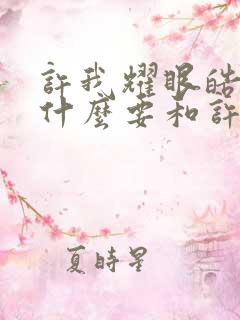 許我耀眼皓
什麼要和許
夏時星